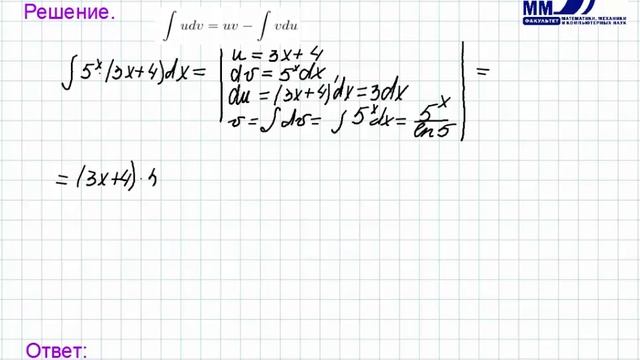 Решение.
∫ udv = uv − ∫ vdu
ММ
ФАКУЛЬТЕТ МАТЕМАТИКИ, МЕХАНИКИ И КОМПЬЮТЕРНЫХ НАУК
∫ 5^x · (3x+4)dx = | u = 3x+4
dv = 5^x dx
du = (3x+4)'dx = 3dx
v = ∫ dv = ∫ 5^x dx = 5^x/ln5 | =
= (3x+4) ·
Ответ: